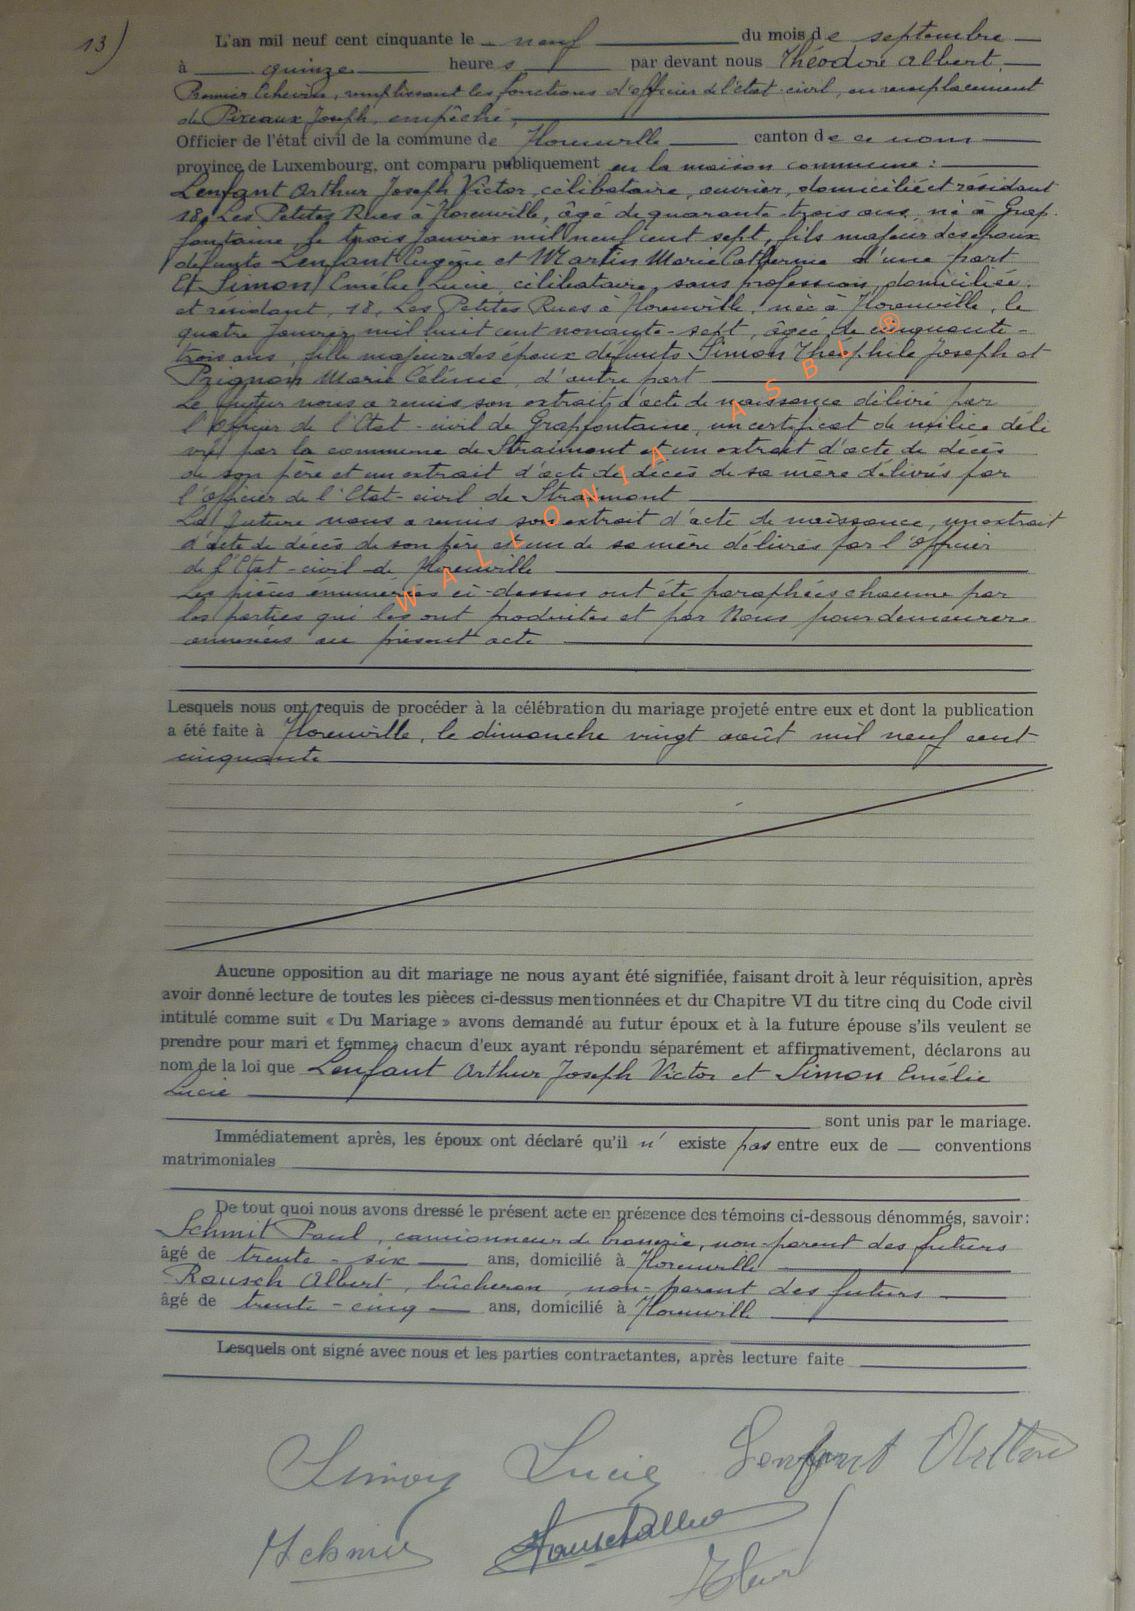 13)
L'an mil neuf cent cinquante le neuf du mois de septembre
à quinze heures par devant nous Théodore Albert,
Premier Echevin, remplissant les fonctions d'officier de l'état-civil, en remplacement
de Pireaux Joseph, empêché,
Officier de l'état civil de la commune de Florenville canton de ce nom
province de Luxembourg, ont comparu publiquement en la maison commune :
Lenfant Arthur Joseph Victor, célibataire, ouvrier, domicilié et résidant
18, Les Petites Rues à Florenville, âgé de quarante-trois ans, né à Grap-
fontaine le trois Janvier mil neuf cent sept, fils majeur des époux
défunts Lenfant Eugène et Martin Marie Catherine d'une part
Et Simon Emélie Lucie, célibataire, sans profession, domiciliée
et résidant, 18, Les Petites Rues à Florenville, née à Florenville, le
quatre Janvier mil huit cent nonante-sept, âgée de cinquante-
trois ans, fille majeure des époux défunts Simon Théophile Joseph et
Prignon Marie Célinie, d'autre part
Le futur nous a remis son extrait d'acte de naissance délivré par
l'officier de l'Etat-civil de Grapfontaine, un certificat de milice déli
vré par la commune de Straimont et un extrait d'acte de décès
de son père et un extrait d'acte de décès de sa mère délivrés par
l'officier de l'Etat-civil de Straimont
La future nous a remis son extrait d'acte de naissance, un extrait
d'acte de décès de son père et un de sa mère délivrés par l'officier
de l'Etat-civil de Florenville
Les pièces énumérées ci-dessus ont été paraphées chacune par
les parties qui les ont produites et par Nous pour demeurer
annexées au présent acte
WALLONIA ASBL ®
Lesquels nous ont requis de procéder à la célébration du mariage projeté entre eux et dont la publication
a été faite à Florenville, le dimanche vingt août mil neuf cent
cinquante
Aucune opposition au dit mariage ne nous ayant été signifiée, faisant droit à leur réquisition, après
avoir donné lecture de toutes les pièces ci-dessus mentionnées et du Chapitre VI du titre cinq du Code civil
intitulé comme suit « Du Mariage » avons demandé au futur époux et à la future épouse s'ils veulent se
prendre pour mari et femme; chacun d'eux ayant répondu séparément et affirmativement, déclarons au
nom de la loi que Lenfant Arthur Joseph Victor et Simon Emélie
Lucie
sont unis par le mariage.
Immédiatement après, les époux ont déclaré qu'il n' existe pas entre eux de — conventions
matrimoniales
De tout quoi nous avons dressé le présent acte en présence des témoins ci-dessous dénommés, savoir :
Schmit Paul, camionneur de brasserie, non-parent des futurs
âgé de trente-six ans, domicilié à Florenville
Rausch Albert, bûcheron, non-parent des futurs
âgé de trente-cinq ans, domicilié à Florenville
Lesquels ont signé avec nous et les parties contractantes, après lecture faite
Simon Lucie Lenfant Arthur
Schmit